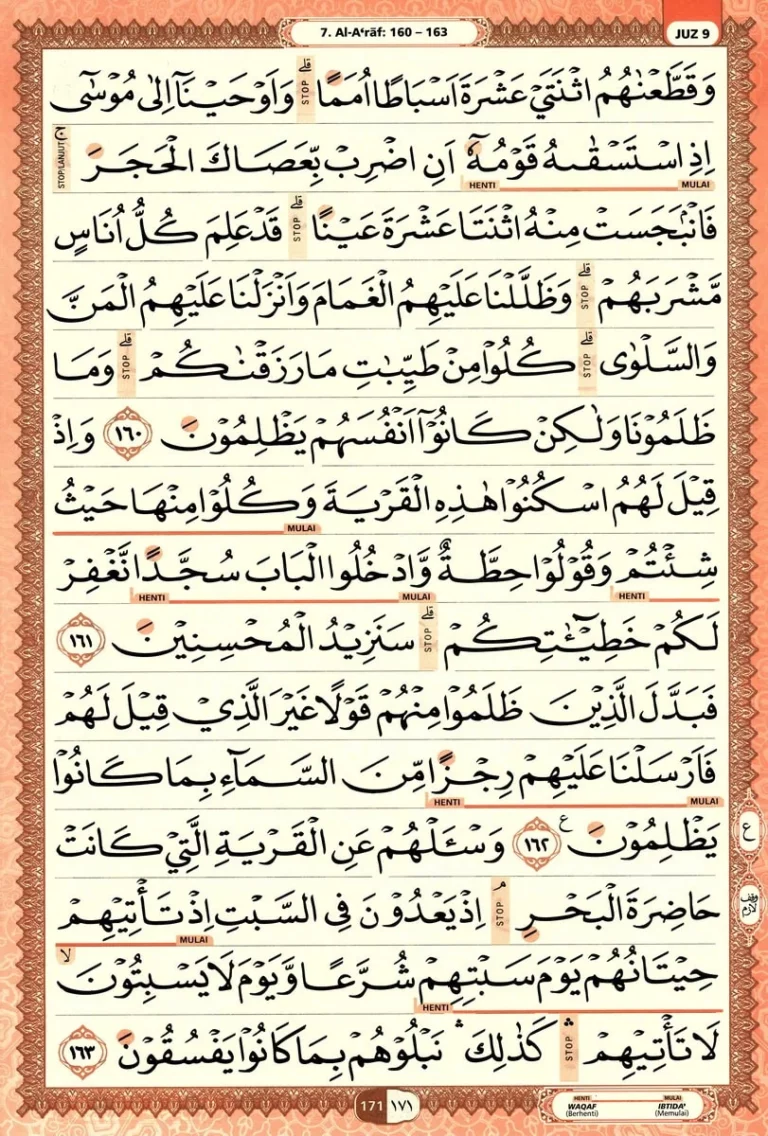 7. Al-A‘rāf: 160 – 163
JUZ 9
وَقَطَّعْنٰهُمُ اثْنَتَيْ عَشْرَةَ اَسْبَاطًا اُمَمًاۗ STOP وَاَوْحَيْنَآ اِلٰى مُوْسٰٓى
اِذِ اسْتَسْقٰىهُ قَوْمُهٗٓ اَنِ اضْرِبْ بِّعَصَاكَ الْحَجَرَۚ STOP/LANJUT
MULAI HENTI
فَانْۢبَجَسَتْ مِنْهُ اثْنَتَا عَشْرَةَ عَيْنًاۗ STOP قَدْ عَلِمَ كُلُّ اُنَاسٍ
مَّشْرَبَهُمْۗ STOP وَظَلَّلْنَا عَلَيْهِمُ الْغَمَامَ وَاَنْزَلْنَا عَلَيْهِمُ الْمَنَّ
وَالسَّلْوٰىۗ STOP كُلُوْا مِنْ طَيِّبٰتِ مَا رَزَقْنٰكُمْۗ STOP وَمَا
ظَلَمُوْنَا وَلٰكِنْ كَانُوْٓا اَنْفُسَهُمْ يَظْلِمُوْنَ ١٦٠ وَاِذْ
قِيْلَ لَهُمُ اسْكُنُوْا هٰذِهِ الْقَرْيَةَ وَكُلُوْا مِنْهَا حَيْثُ
MULAI
شِئْتُمْ وَقُوْلُوْا حِطَّةٌ وَّادْخُلُوا الْبَابَ سُجَّدًا نَّغْفِرْ
HENTI MULAI HENTI
لَكُمْ خَطِيْۤـٰٔتِكُمْۗ STOP سَنَزِيْدُ الْمُحْسِنِيْنَ ١٦١
فَبَدَّلَ الَّذِيْنَ ظَلَمُوْا مِنْهُمْ قَوْلًا غَيْرَ الَّذِيْ قِيْلَ لَهُمْ
فَاَرْسَلْنَا عَلَيْهِمْ رِجْزًا مِّنَ السَّمَاۤءِ بِمَا كَانُوْا
MULAI HENTI
يَظْلِمُوْنَ ١٦٢ ع وَسْـَٔلْهُمْ عَنِ الْقَرْيَةِ الَّتِيْ كَانَتْ
ع
حَاضِرَةَ الْبَحْرِۘ STOP اِذْ يَعْدُوْنَ فِى السَّبْتِ اِذْ تَأْتِيْهِمْ
وقف لازم
MULAI
حِيْتَانُهُمْ يَوْمَ سَبْتِهِمْ شُرَّعًا وَّيَوْمَ لَا يَسْبِتُوْنَۙ
HENTI
لَا تَأْتِيْهِمْۛ STOP كَذٰلِكَۛ نَبْلُوْهُمْ بِمَا كَانُوْا يَفْسُقُوْنَ ١٦٣
171 ١٧١
HENTI MULAI
WAQAF IBTIDA'
(Berhenti) (Memulai)